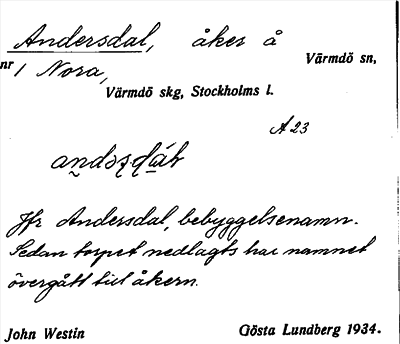 Andersdal, åker å
Värmdö sn,
nr 1 Nora,
Värmdö skg, Stockholms l.
A 23
Jfr Andersdal, bebyggelsenamn.
Sedan torpet nedlagts har namnet
övergått till åkern.
John Westin
Gösta Lundberg 1934.